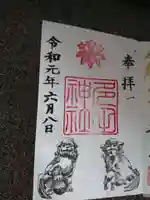 奉拝
神社
令和元年六月八日